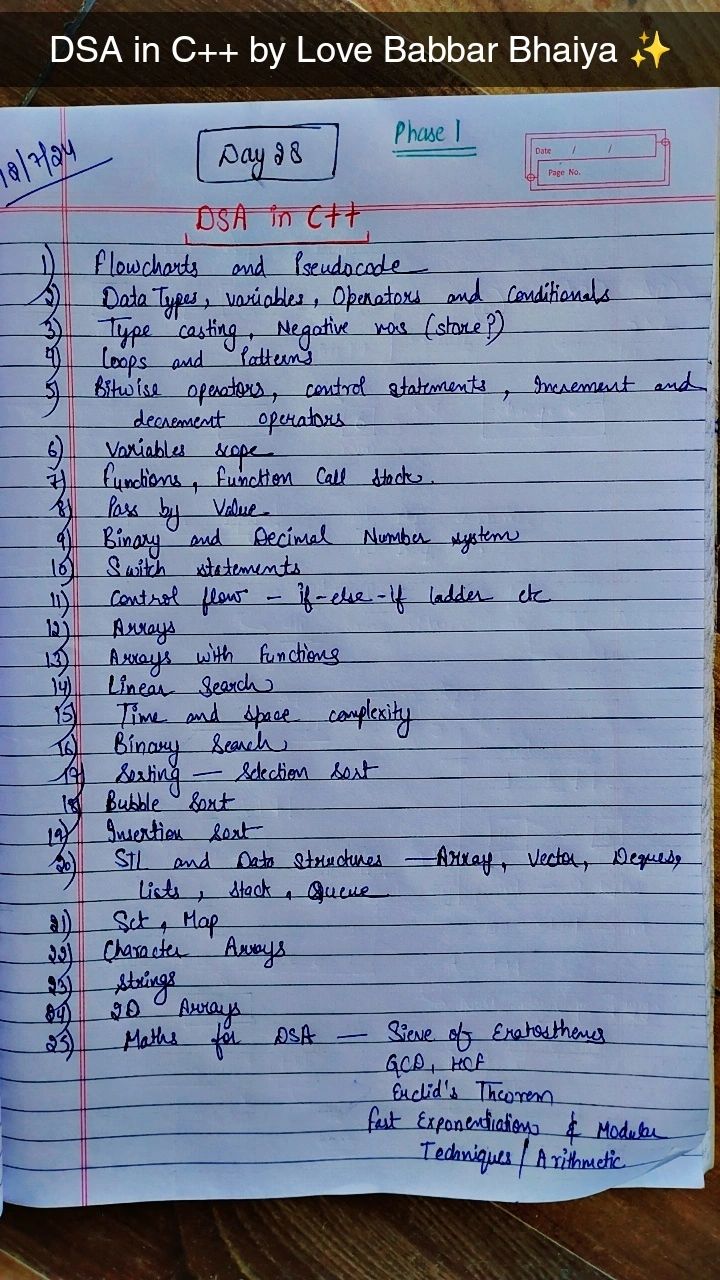 DSA in C++ by Love Babbar Bhaiya ✨
12/7/24
Day 28
Phase 1
Date / /
Page No.
DSA in C++
1) Flowcharts and Pseudocode
2) Data Types, variables, Operators and Conditionals
3) Type casting, Negative nos (store?)
4) Loops and Patterns
5) Bitwise operators, control statements, Increment and
decrement operators
6) Variables scope
7) Functions, Function Call Stack.
8) Pass by Value.
9) Binary and Decimal Number system
10) Switch statements
11) Control flow - if-else-if ladder etc
12) Arrays
13) Arrays with Functions
14) Linear Search
15) Time and space complexity
16) Binary Search
17) Sorting — Selection Sort
18) Bubble Sort
19) Insertion Sort
20) STL and Data Structures — Array, Vector, Deques,
Lists, Stack, Queue
21) Set, Map
22) Character Arrays
23) Strings
24) 2D Arrays
25) Maths for DSA — Sieve of Eratosthenes
GCD, HCF
Euclid's Theorem
Fast Exponentiation & Modular
Techniques / Arithmetic